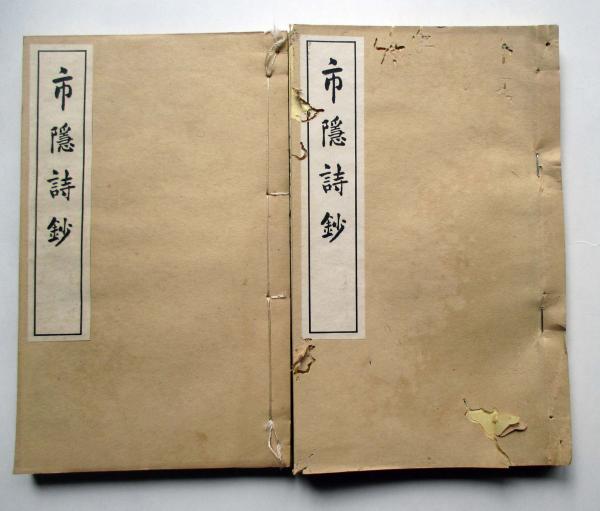 市隱詩鈔
市隱詩鈔